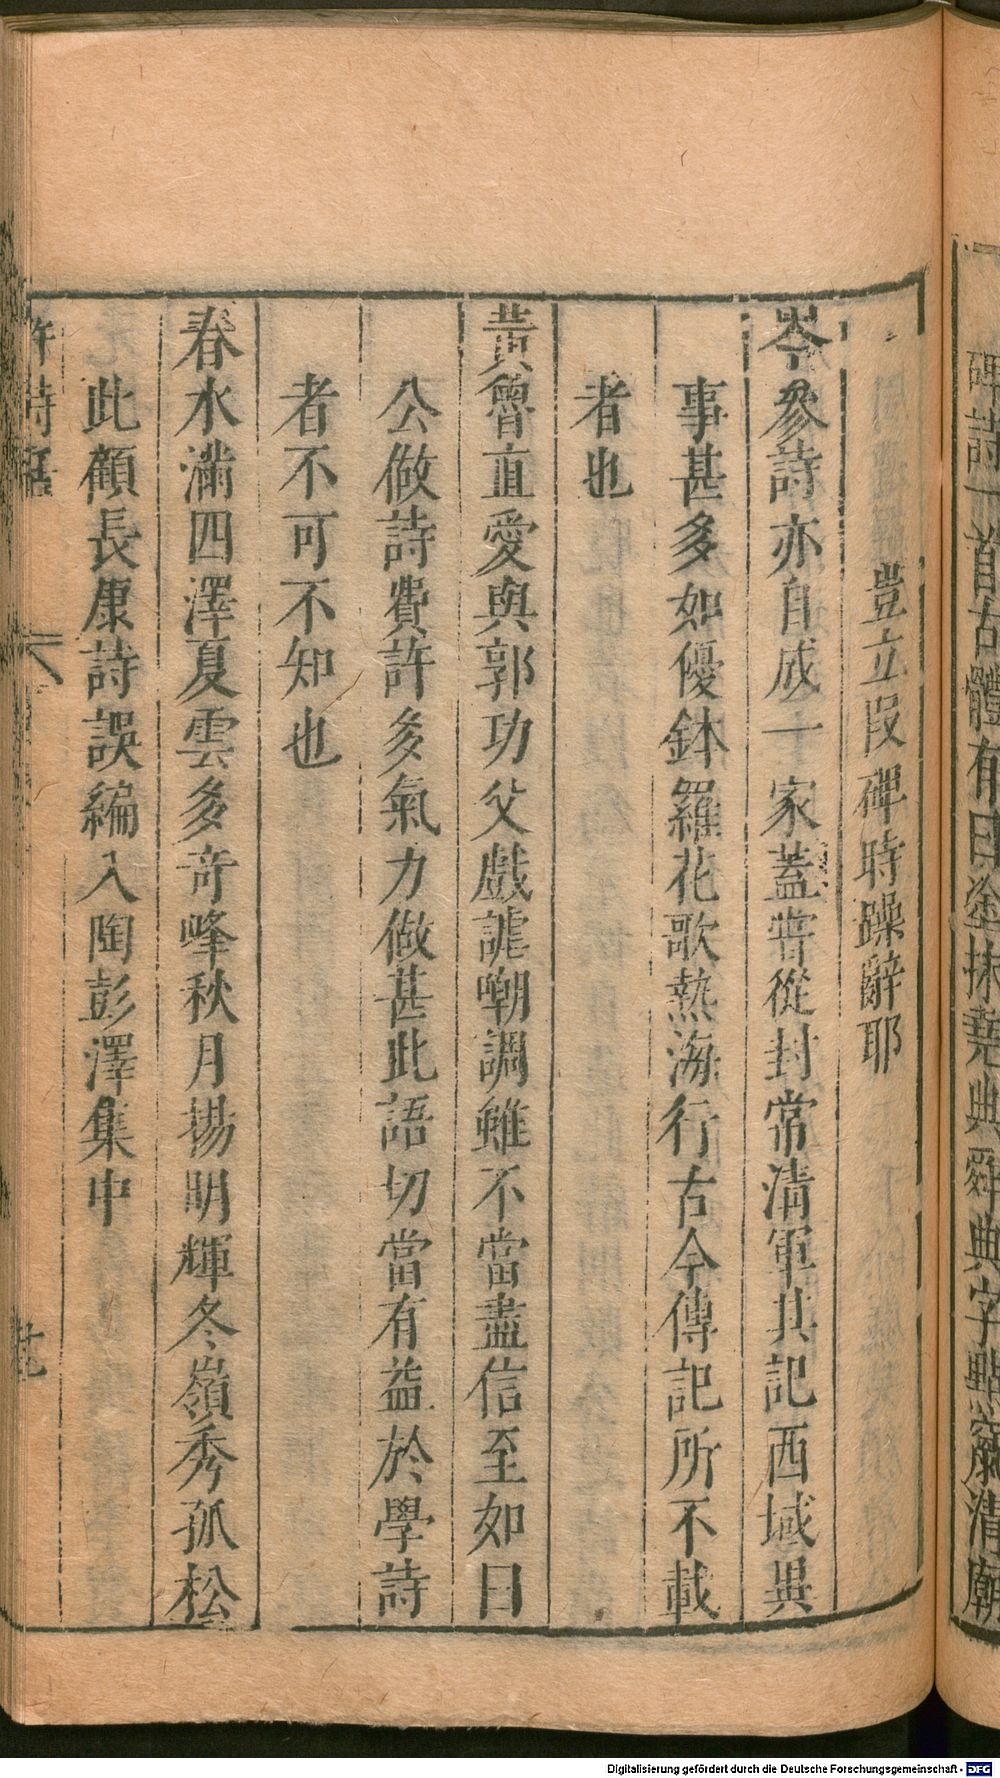 碑詩一首古體有曰塗抹堯典舜典字點竄清廟
豈立段碑時躁辭耶
岑參詩亦自成一家蓋嘗從封常清軍其記西域異
事甚多如優鉢羅花歌熱海行古今傳記所不載
者也
黃魯直愛與郭功父戲謔嘲調雖不當盡信至如曰
公做詩費許多氣力做甚此語切當有益於學詩
者不可不知也
春水滿四澤夏雲多奇峰秋月揚明輝冬嶺秀孤松
此顧長康詩誤編入陶彭澤集中
許詩話
六
Digitalisierung gefördert durch die Deutsche Forschungsgemeinschaft - DFG